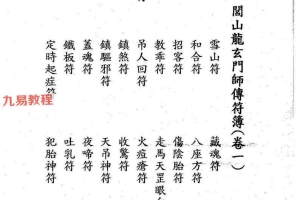 閭山龍玄門師傳符簿(卷一)
雪山符
和合符
招客符
教乖符
吊人回符
鎮煞符
鎮驅邪符
蓋魂符
鐵板符
定時起症符
藏魂符
八座方符
傷陰胎符
走馬天罡眼
火疸瘡符
收驚符
天吊神符
夜啼符
吐乳符
犯胎神符
九易教程